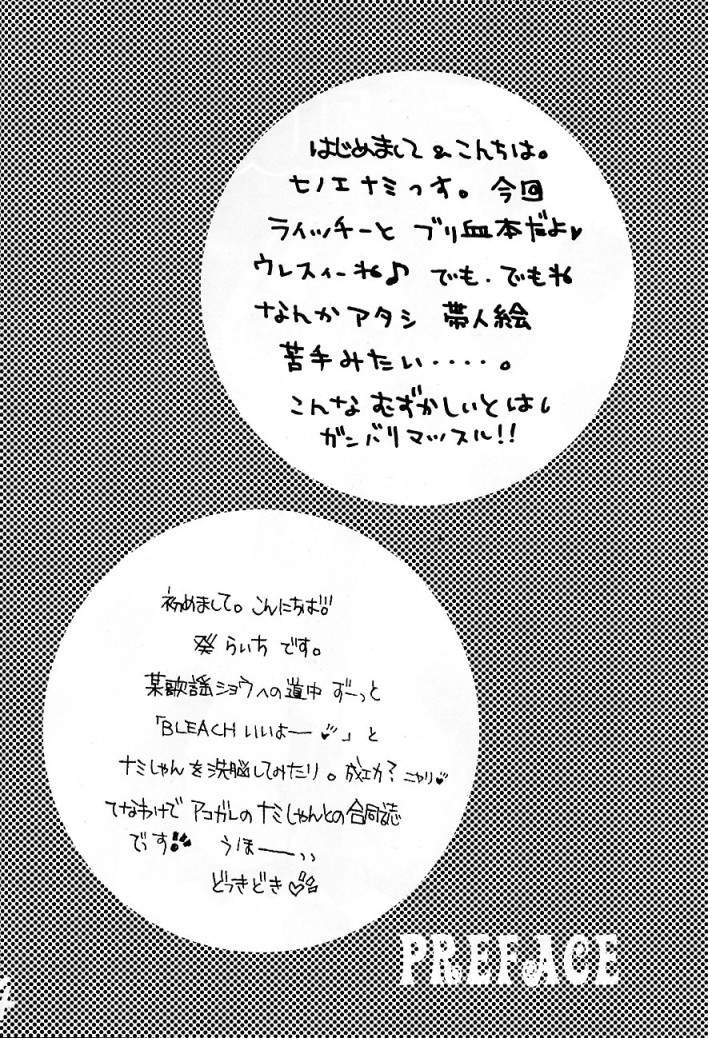 はじめまして&こんちは。
七ノエナミっす。今回
ライッチーと ブリ血本だよ♥
ウレスィーね♪ でも・でもね
なんかアタシ 帯人絵
苦手みたい・・・・。
こんな むずかしいとは。
ガンバリマッスル!!
初めまして。こんにちは!!
癸 らいち です。
某歌謡ショウへの道中 ずーっと
「BLEACHいいよー♥」と
ナミしゃんを洗脳してみたり。成功? ニヤリ♥
てなわけで アコガレのナミしゃんとの合同誌
でっす!! うほーーっ
どっきどき♡
PREFACE
4